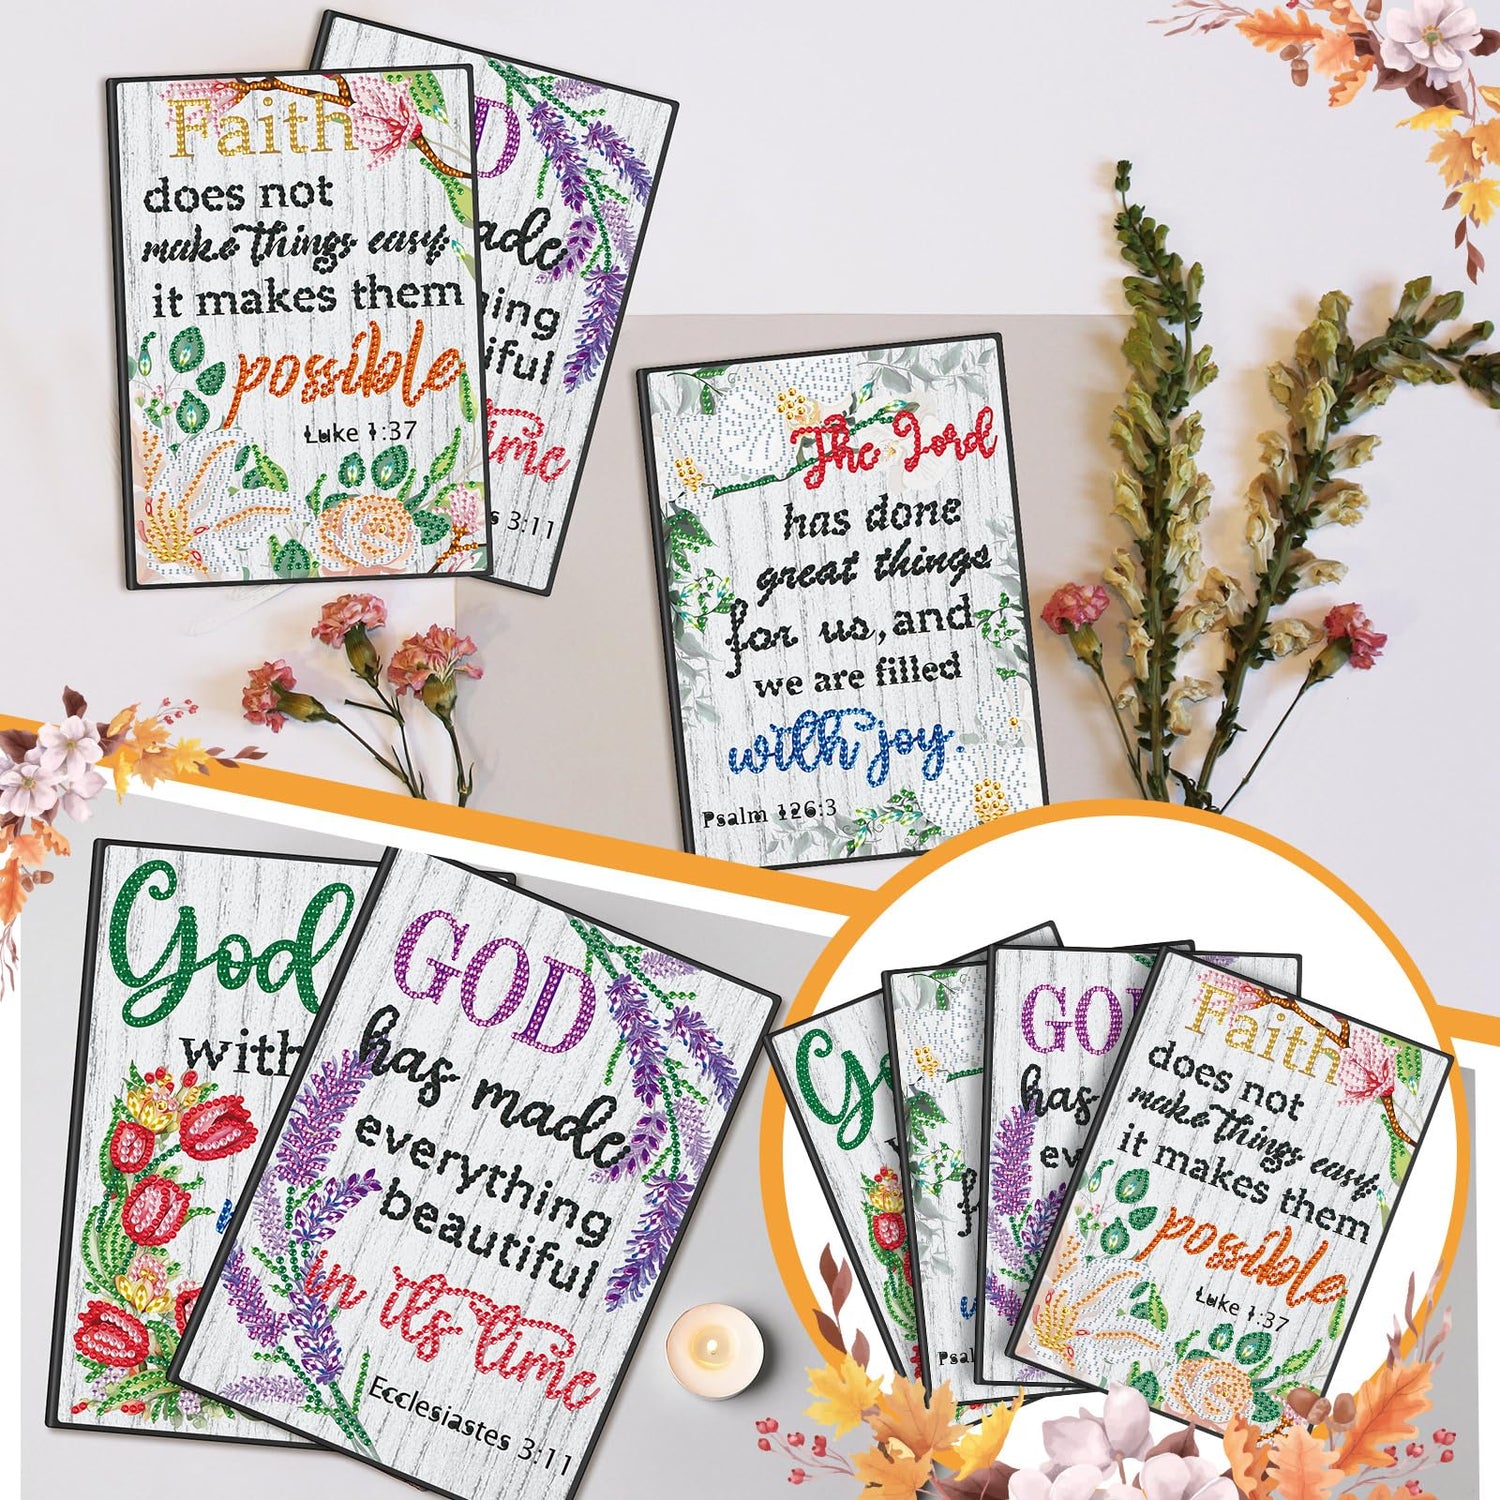 Faith
does not
make things easy
it makes them
possible
Luke 1:37
3:11
The Lord
has done
great things
for us, and
we are filled
with joy.
Psalm 126:3
God
with
GOD
has made
everything
beautiful
in its time
Ecclesiastes 3:11
has
Faith
does not
make things easy
it makes them
possible
Luke 1:37